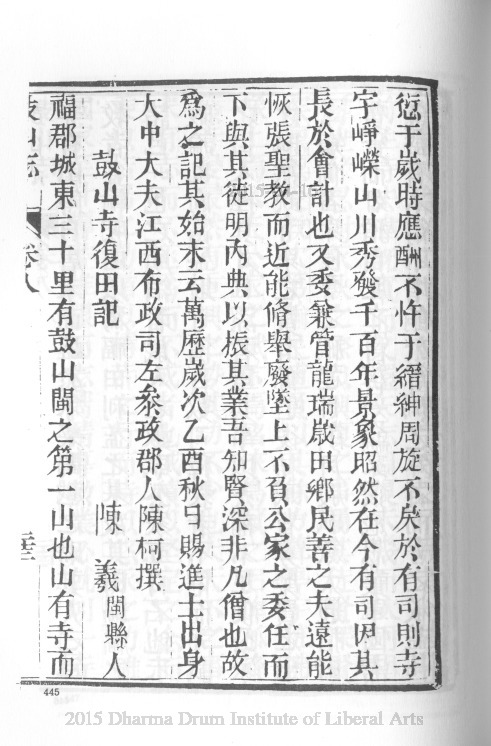 愆于歲時應酬不忤于縉紳周旋不矣於有司則寺
宇崢嶸山川秀發千百年景象昭然在今有司因其
長於會計也又委兼管龍瑞歲田鄉民善之夫遠能
恢張聖教而近能脩舉廢墜上不負公家之委任而
下與其徒明內典以振其業吾知賢深非凡僧也故
為之記其始末云萬歷歲次乙酉秋日賜進士出身
大中大夫江西布政司左叅政郡人陳柯撰
鼓山寺復田記
陳羲閩縣人
福郡城東三十里有鼓山閩之第一山也山有寺而
鼓山志 卷八
445
2015 Dharma Drum Institute of Liberal Arts